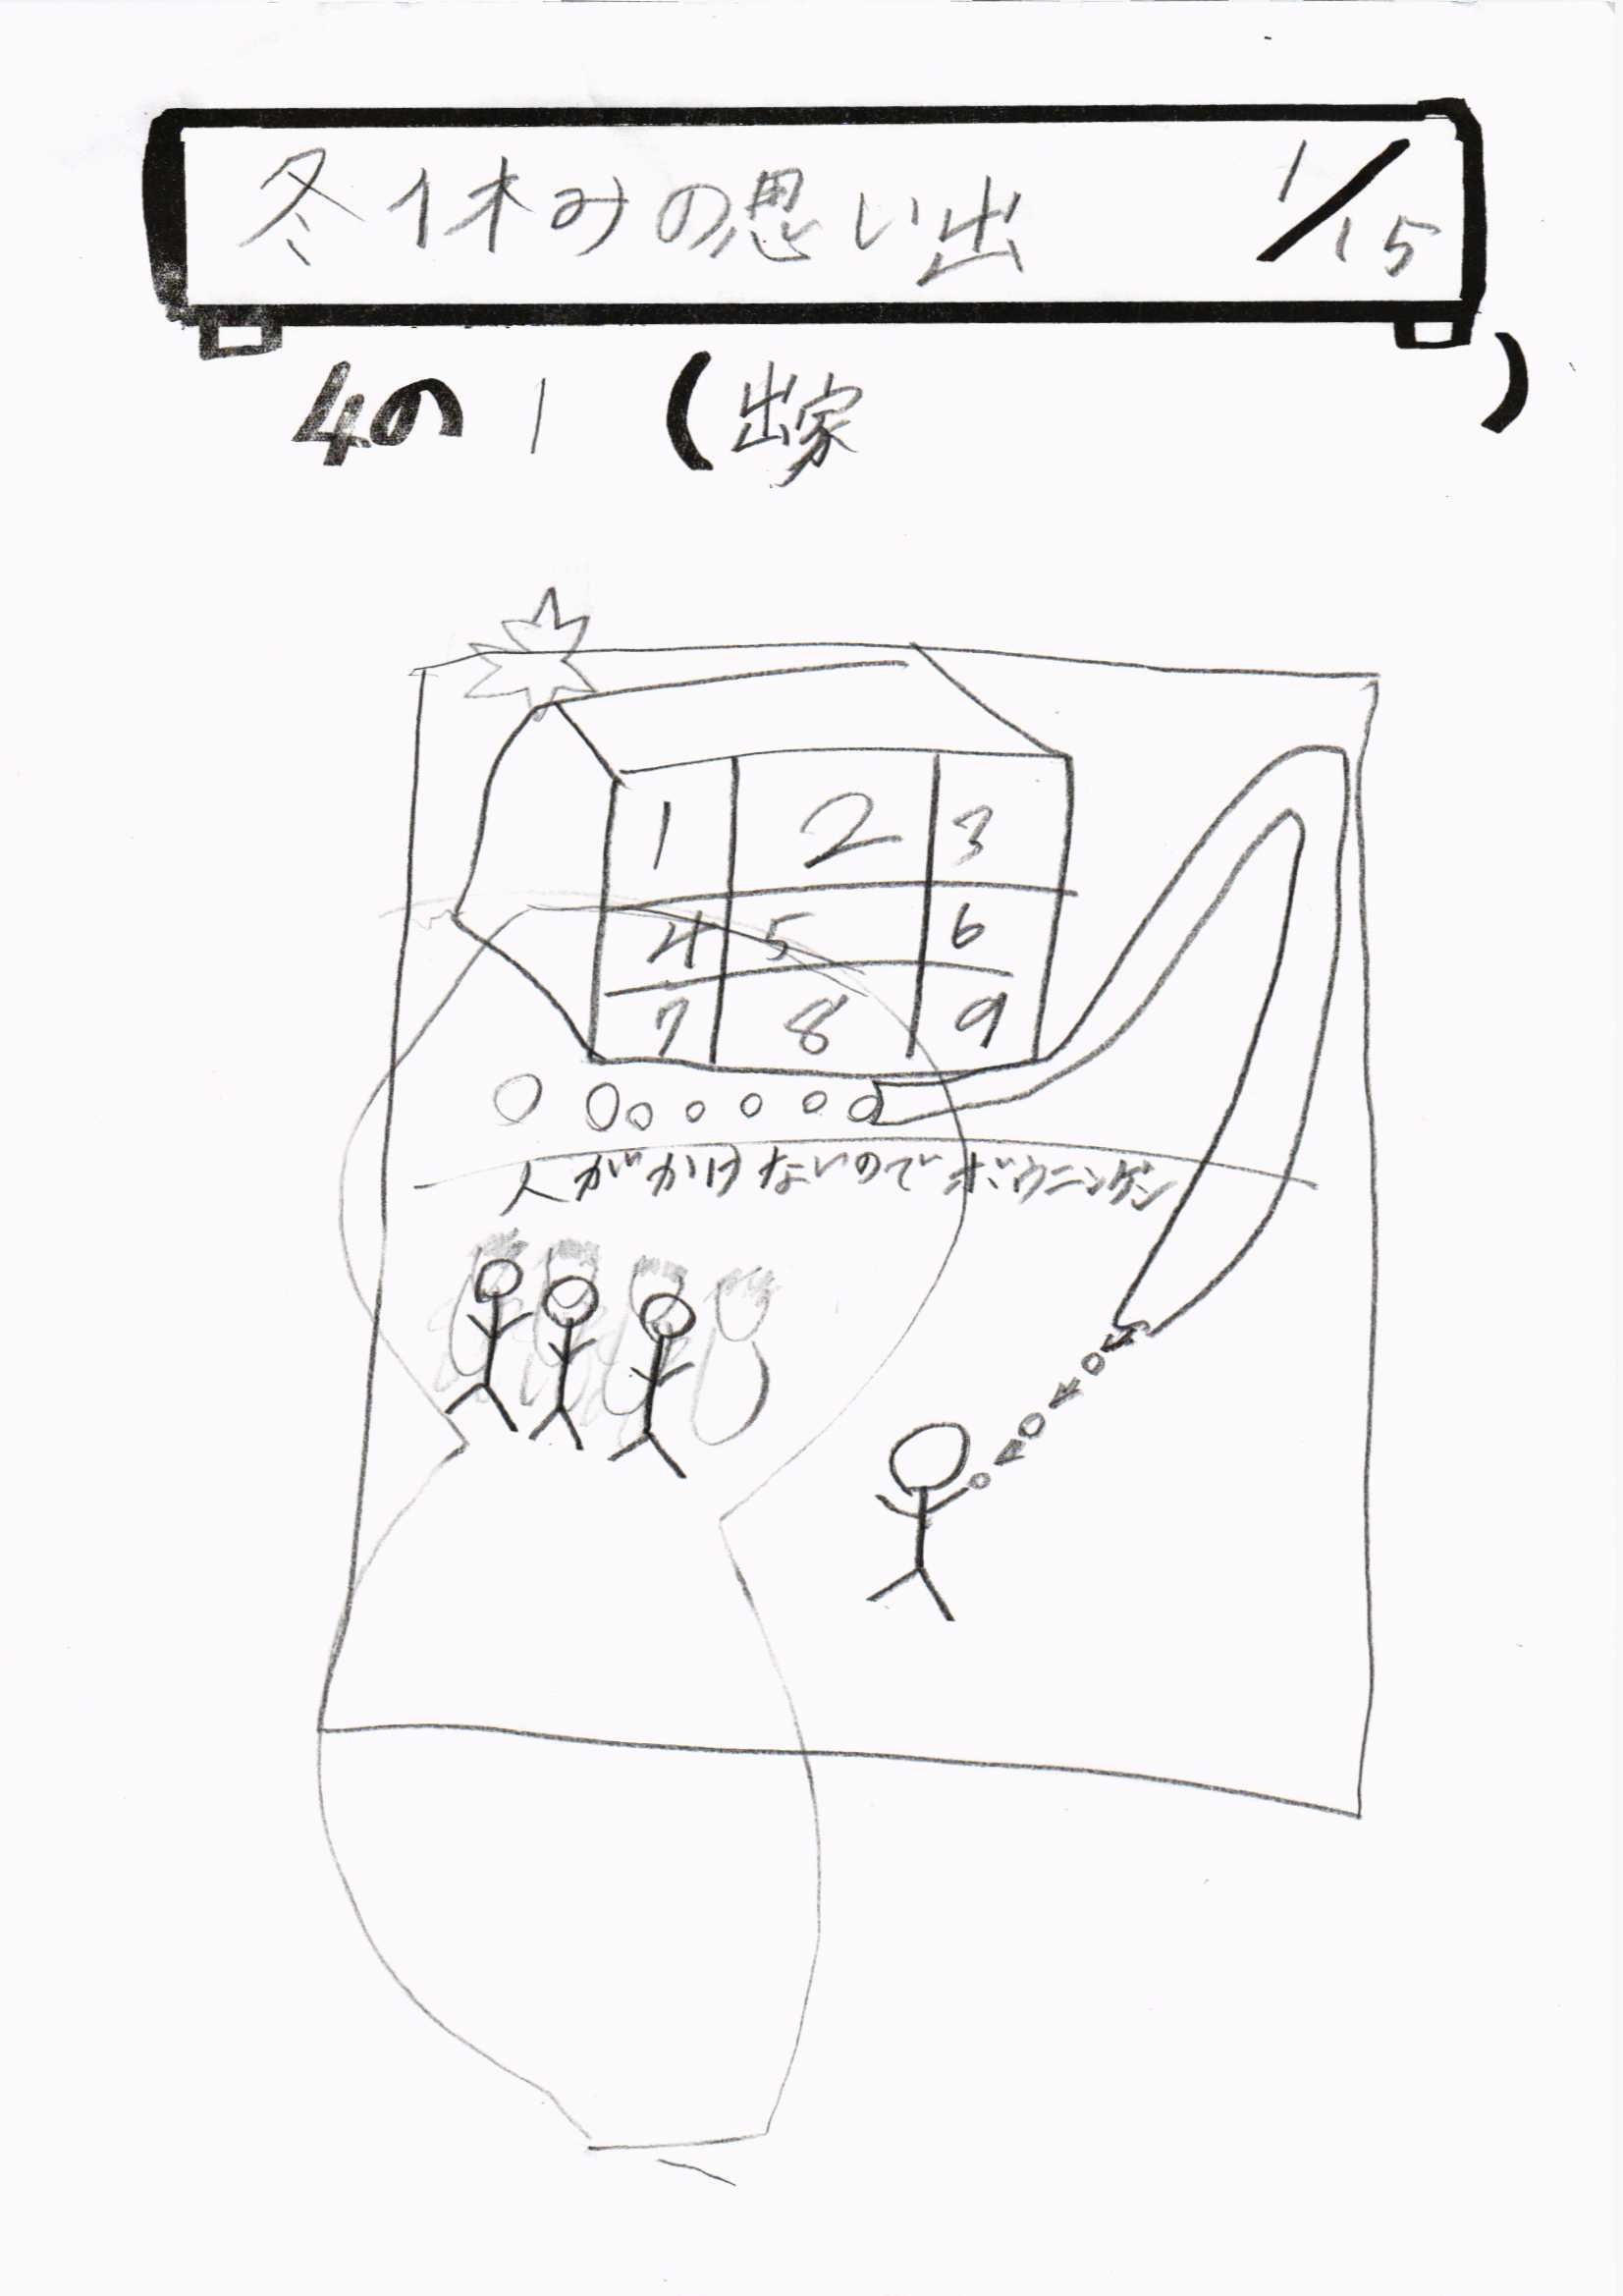 冬休みの思い出 1/15
4の1 (出家 )
1 2 3
4 5 6
7 8 9
人がかけないのでボウニンゲン